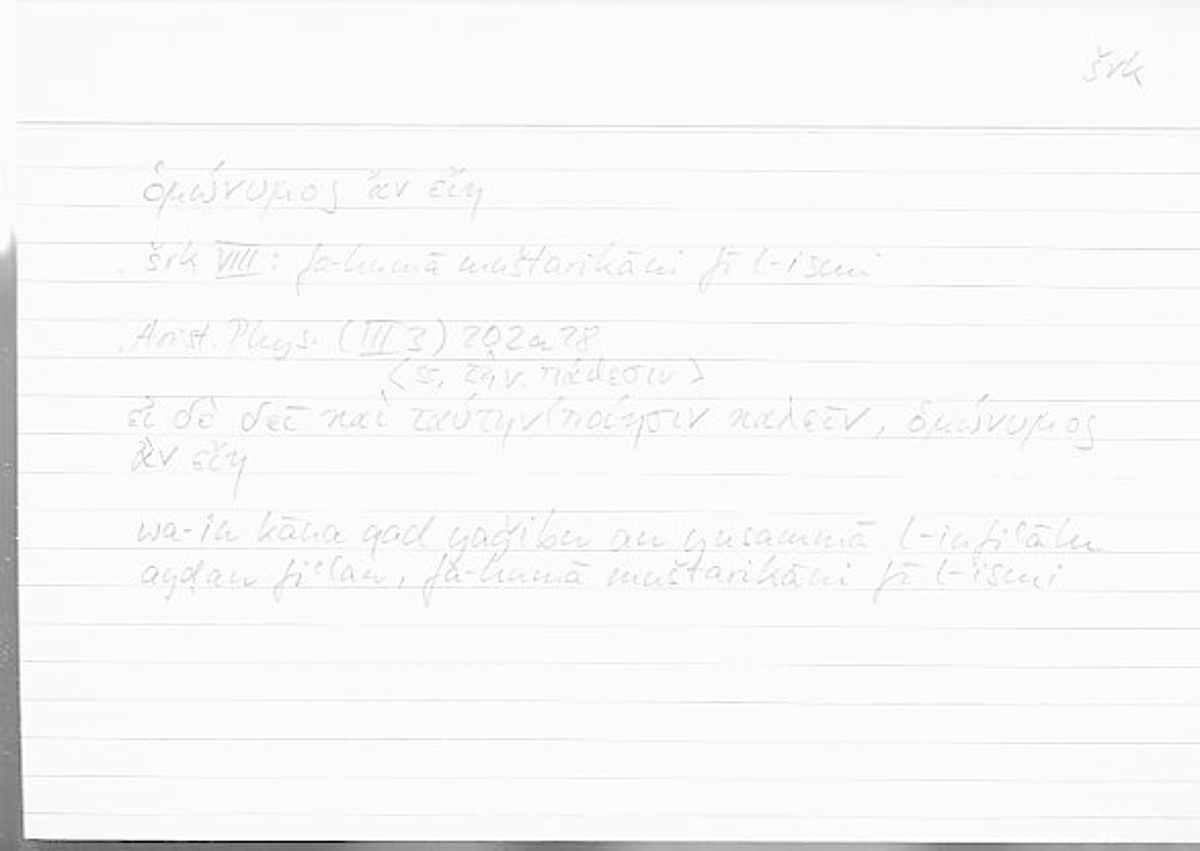 šrk
ὁμώνυμος ἂν εἴη
šrk VIII: fa-humā muštarikāni fī l-ismi
Arist. Phys. (III 3) 202a28
<sc. τὴν πάθεσιν>
εἰ δὲ δεῖ καὶ ταύτην ποίησιν καλεῖν, ὁμώνυμος
ἂν εἴη
wa-in kāna qad yaǧibu an yusammā l-infiʿālu
ayḍan fiʿlan, fa-humā muštarikāni fī l-ismi